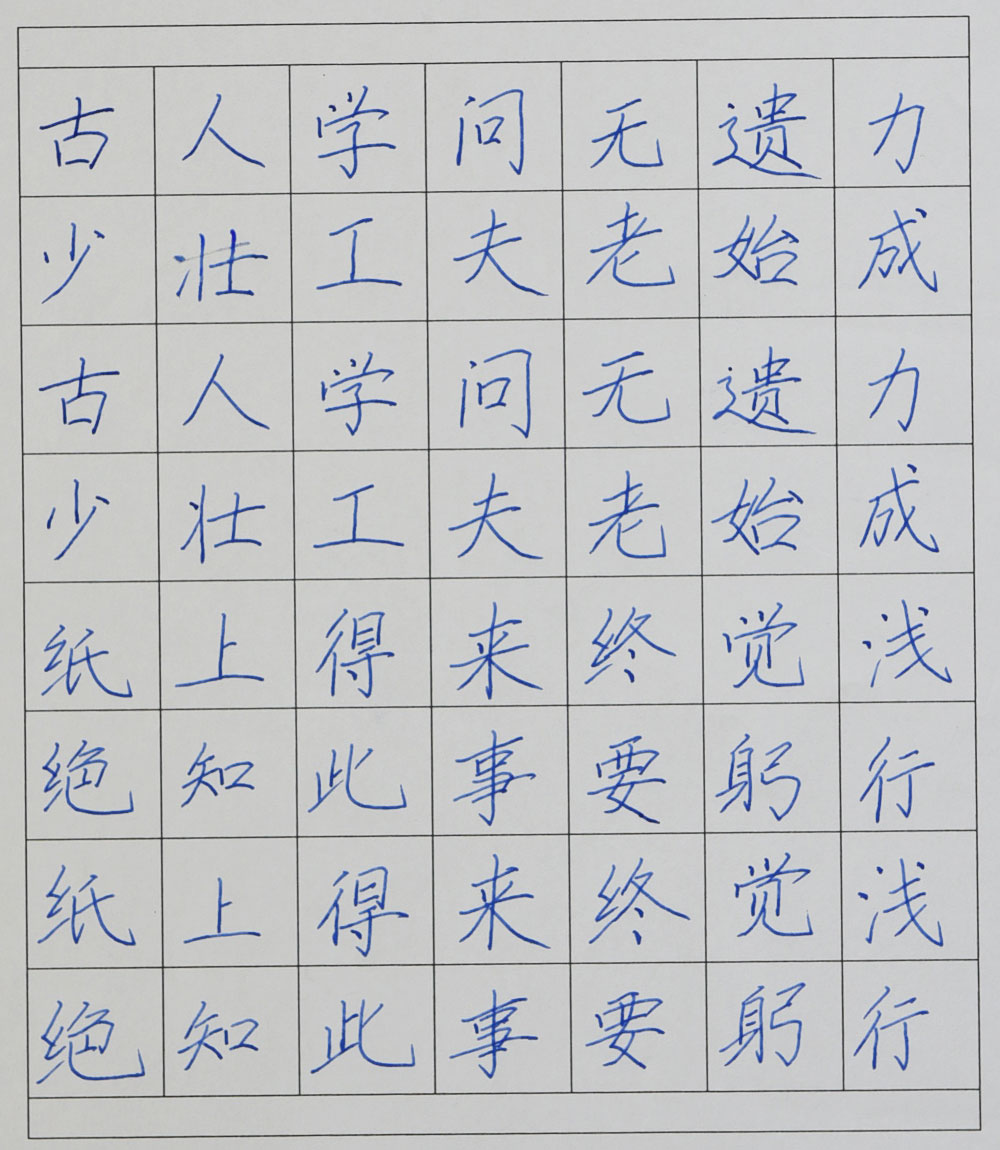 古人学问无遗力
少壮工夫老始成
古人学问无遗力
少壮工夫老始成
纸上得来终觉浅
绝知此事要躬行
纸上得来终觉浅
绝知此事要躬行